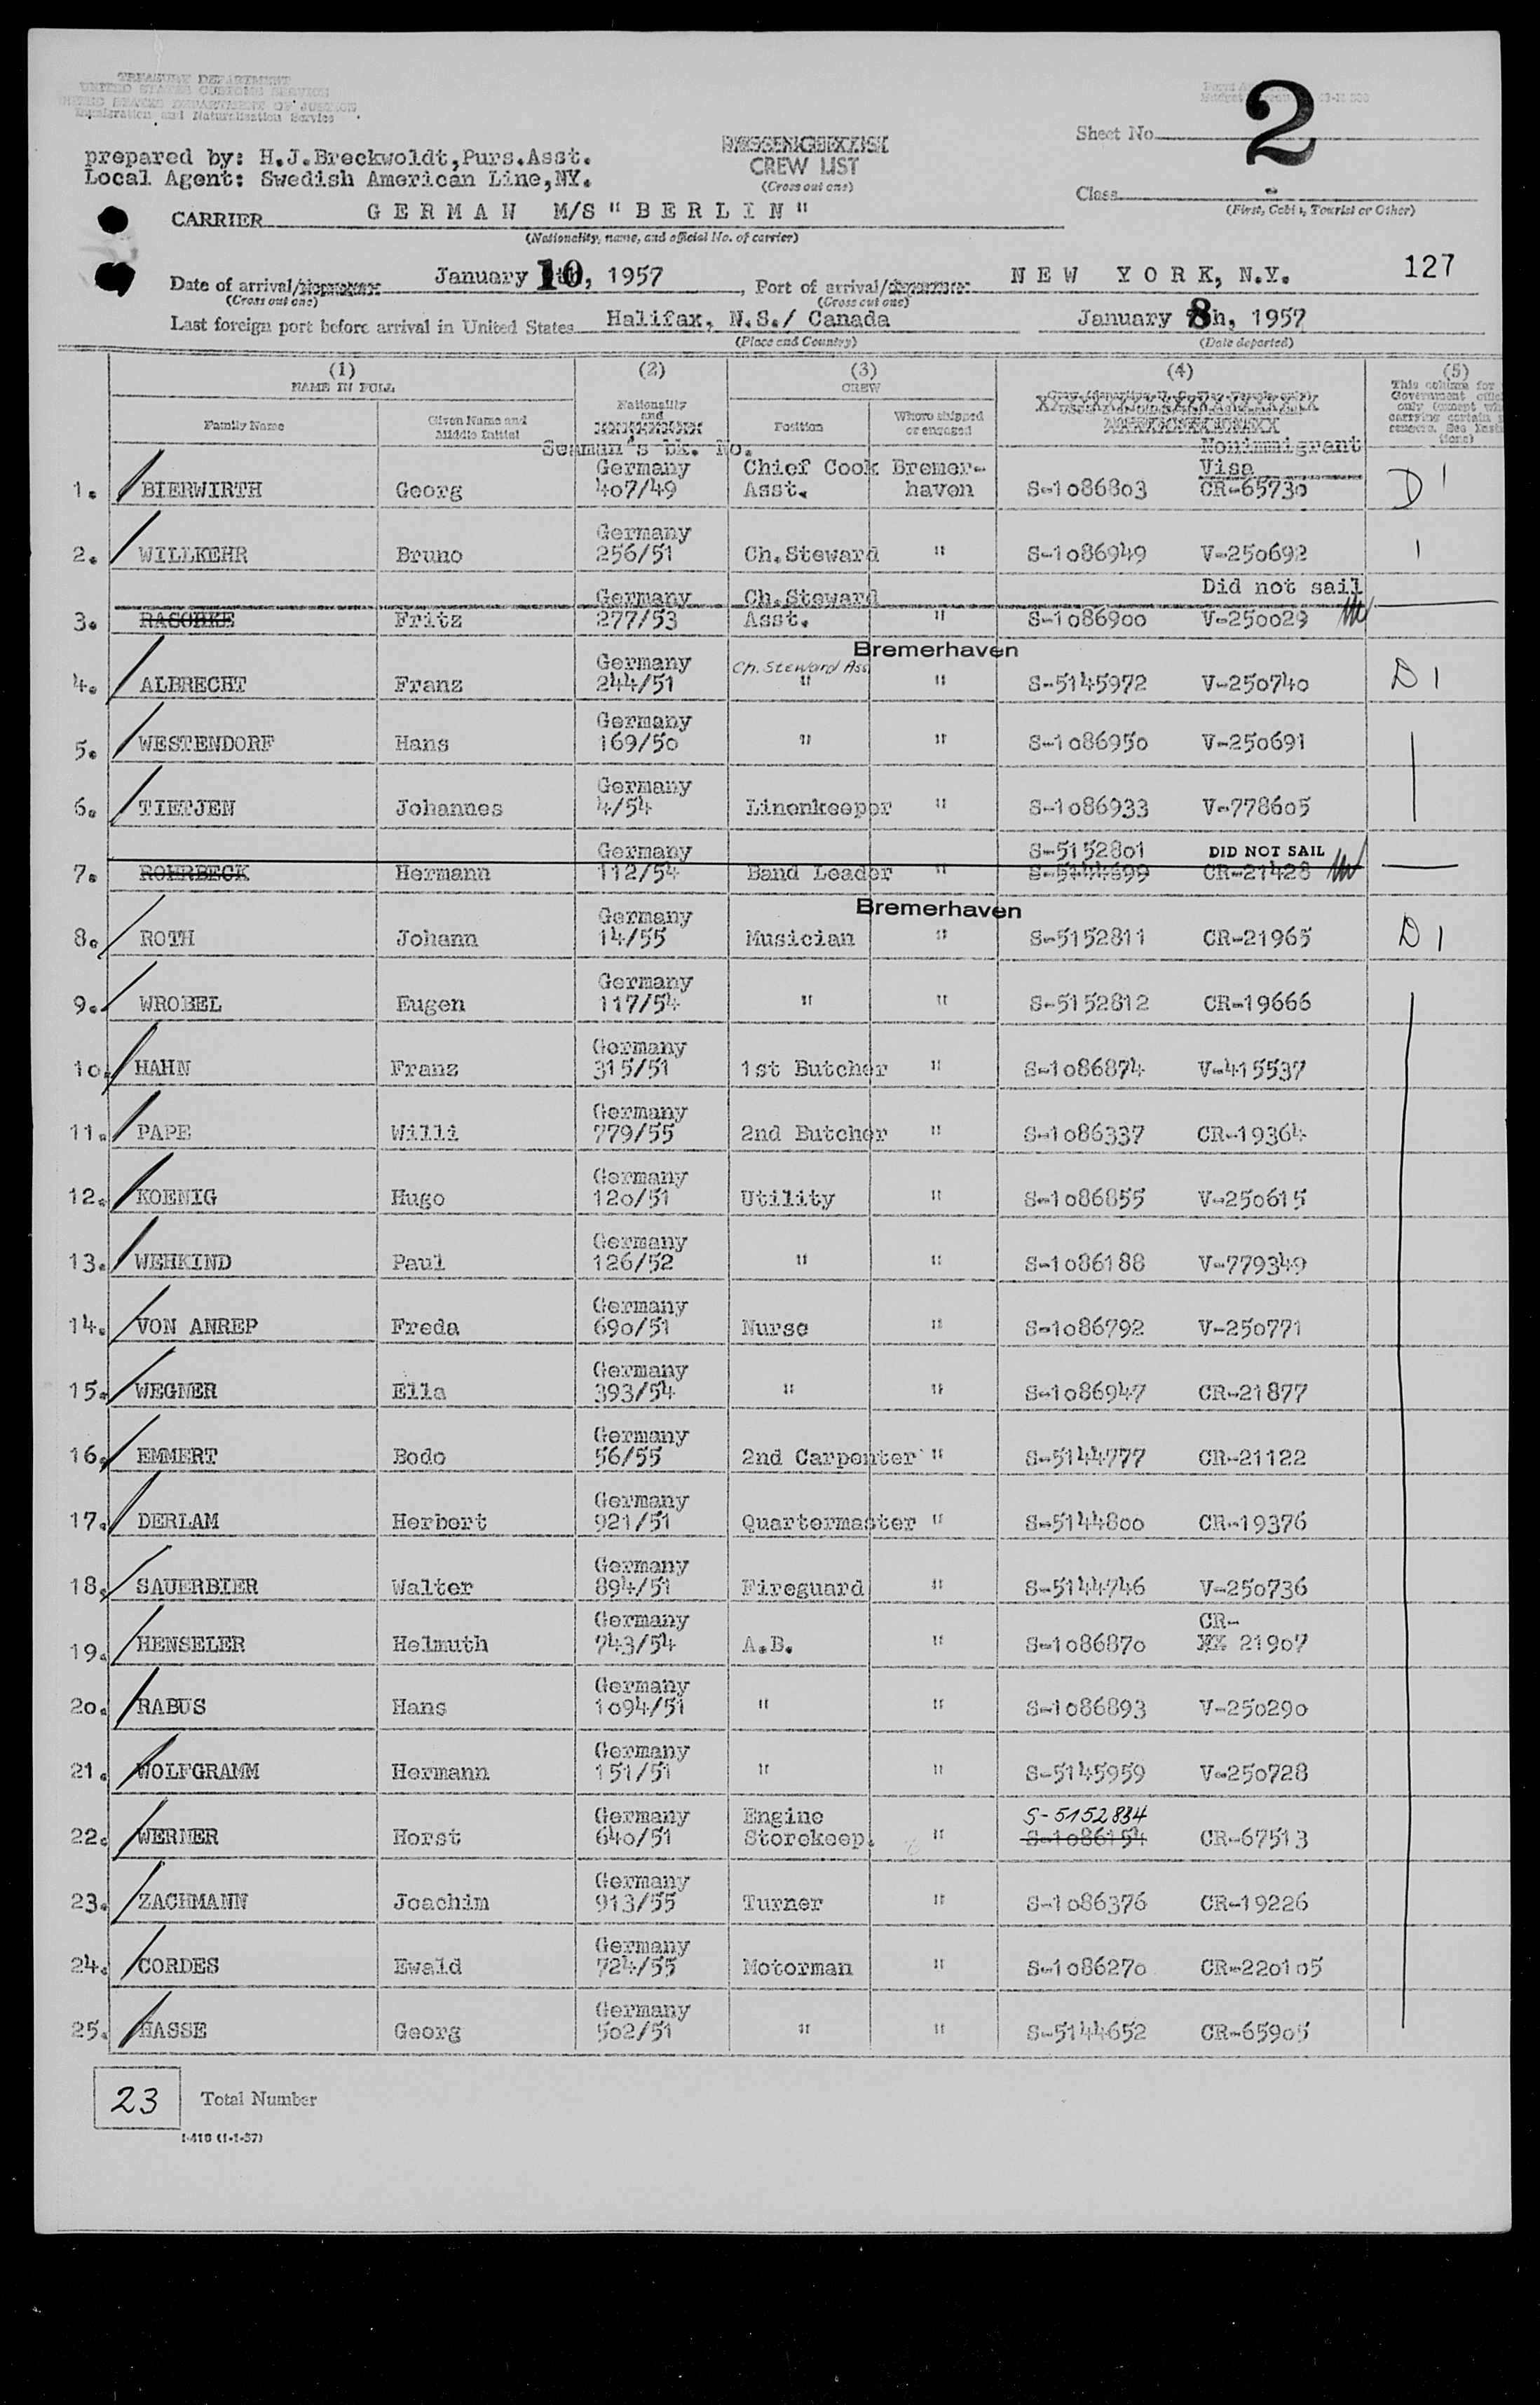 TREASURY DEPARTMENT
UNITED STATES CUSTOMS SERVICE
UNITED STATES DEPARTMENT OF JUSTICE
Immigration and Naturalization Service
Sheet No. 2
prepared by: H.J.Breckwoldt,Purs.Asst.
Local Agent: Swedish American Line,NY.
CREW LIST
(Cross out one)
Class -
(First, Cabin, Tourist or Other)
CARRIER GERMAN M/S "BERLIN"
(Nationality, name, and official No. of carrier)
127
Date of arrival/departure January 10, 1957, Port of arrival/departure NEW YORK, N.Y.
(Cross out one) (Cross out one)
Last foreign port before arrival in United States Halifax, N.S./ Canada January 8h, 1957
(Place and Country) (Date departed)
(1) (2) (3) (4) (5)
NAME IN FULL CREW
Family Name Given Name and Middle Initial Nationality and Position Where shipped or engaged
This column for Government
Seaman's bk. No. Nonimmigrant Visa
1. BIERWIRTH Georg Germany 407/49 Chief Cook Asst. Bremerhaven S-1086803 CR-65730 D 1
2. WILLKEHR Bruno Germany 256/51 Ch.Steward " S-1086949 V-250692 1
Did not sail
3. RASOBKE Fritz Germany 277/53 Ch.Steward Asst. " S-1086900 V-250029
Bremerhaven
4. ALBRECHT Franz Germany 244/51 Ch. Steward Ass " " S-5145972 V-250740 D 1
5. WESTENDORF Hans Germany 169/50 " " S-1086950 V-250691
6. TIETJEN Johannes Germany 4/54 Linenkeeper " S-1086933 V-778605
S-5152801 DID NOT SAIL
7. ROHRBECK Hermann Germany 112/54 Band Leader " S-5144699 CR-21428
Bremerhaven
8. ROTH Johann Germany 14/55 Musician " S-5152811 CR-21965 D 1
9. WROBEL Eugen Germany 117/54 " " S-5152812 CR-19666
10. HAHN Franz Germany 315/51 1st Butcher " S-1086874 V-415537
11. PAPE Willi Germany 779/55 2nd Butcher " S-1086337 CR-19364
12. KOENIG Hugo Germany 120/51 Utility " S-1086855 V-250615
13. WEHKIND Paul Germany 126/52 " " S-1086188 V-779349
14. VON ANREP Freda Germany 690/51 Nurse " S-1086792 V-250771
15. WEGNER Ella Germany 393/54 " " S-1086947 CR-21877
16. EMMERT Bodo Germany 56/55 2nd Carpenter " S-5144777 CR-21122
17. DERLAM Herbert Germany 921/51 Quartermaster " S-5144800 CR-19376
18. SAUERBIER Walter Germany 894/51 Fireguard " S-5144746 V-250736
19. HENSELER Helmuth Germany 743/54 A.B. " S-1086870 CR- XX 21907
20. RABUS Hans Germany 1094/51 " " S-1086893 V-250290
21. WOLFGRAMM Hermann Germany 151/51 " " S-5145959 V-250728
S-5152834
22. WERNER Horst Germany 640/51 Engine Storekeep. " S-1086154 CR-67513
23. ZACHMANN Joachim Germany 913/55 Turner " S-1086376 CR-19226
24. CORDES Ewald Germany 724/55 Motorman " S-1086270 CR-220105
25. HASSE Georg Germany 502/51 " " S-5144652 CR-65905
23 Total Number
I-418 (1-1-57)